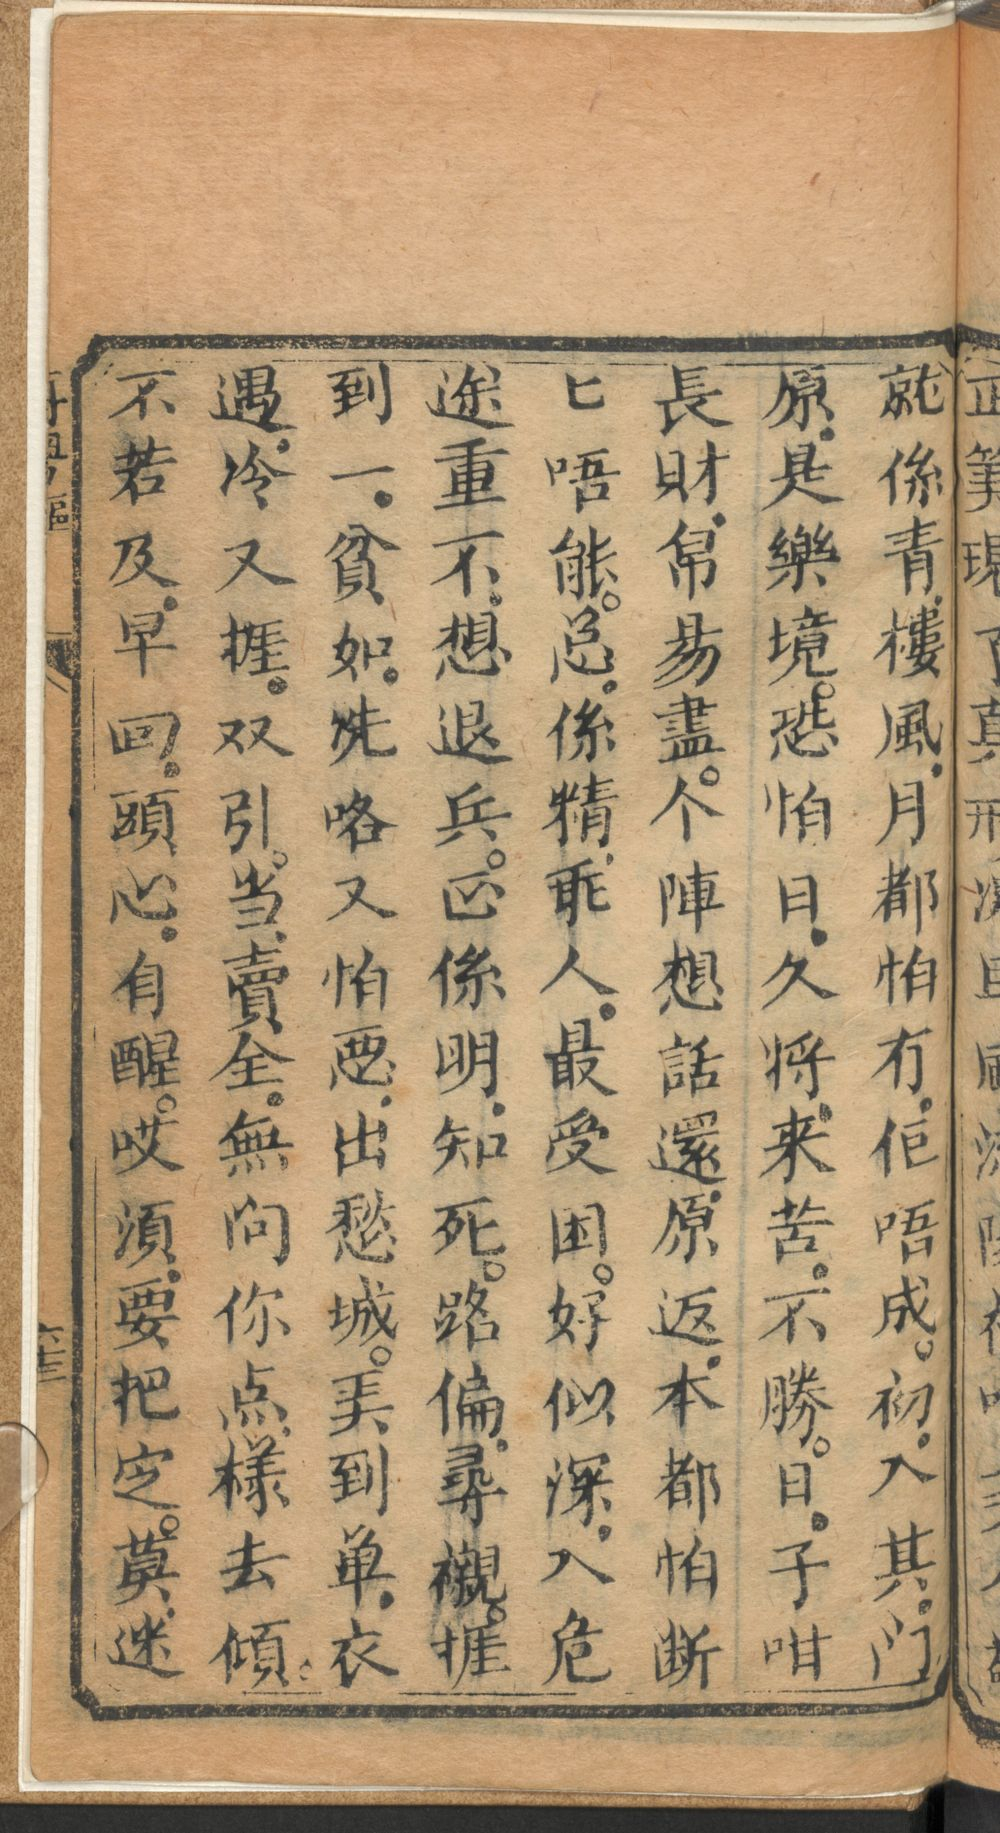 就係青樓風月都怕冇佢唔成。初入其門
原是樂境。恐怕日久将来苦不勝。日子咁
長財帛易盡。个陣想話還原返本都怕断
匕唔能。总係精乖人最受困。好似深入危
途重不想退兵。正係明知死。路偏尋襯。捱
到一貧如洗咯又怕悪出愁城。美到单衣
遇冷又捱双引。当賣全無问你点樣去傾。
不若及早回頭心自醒。哎須要把定。莫迷